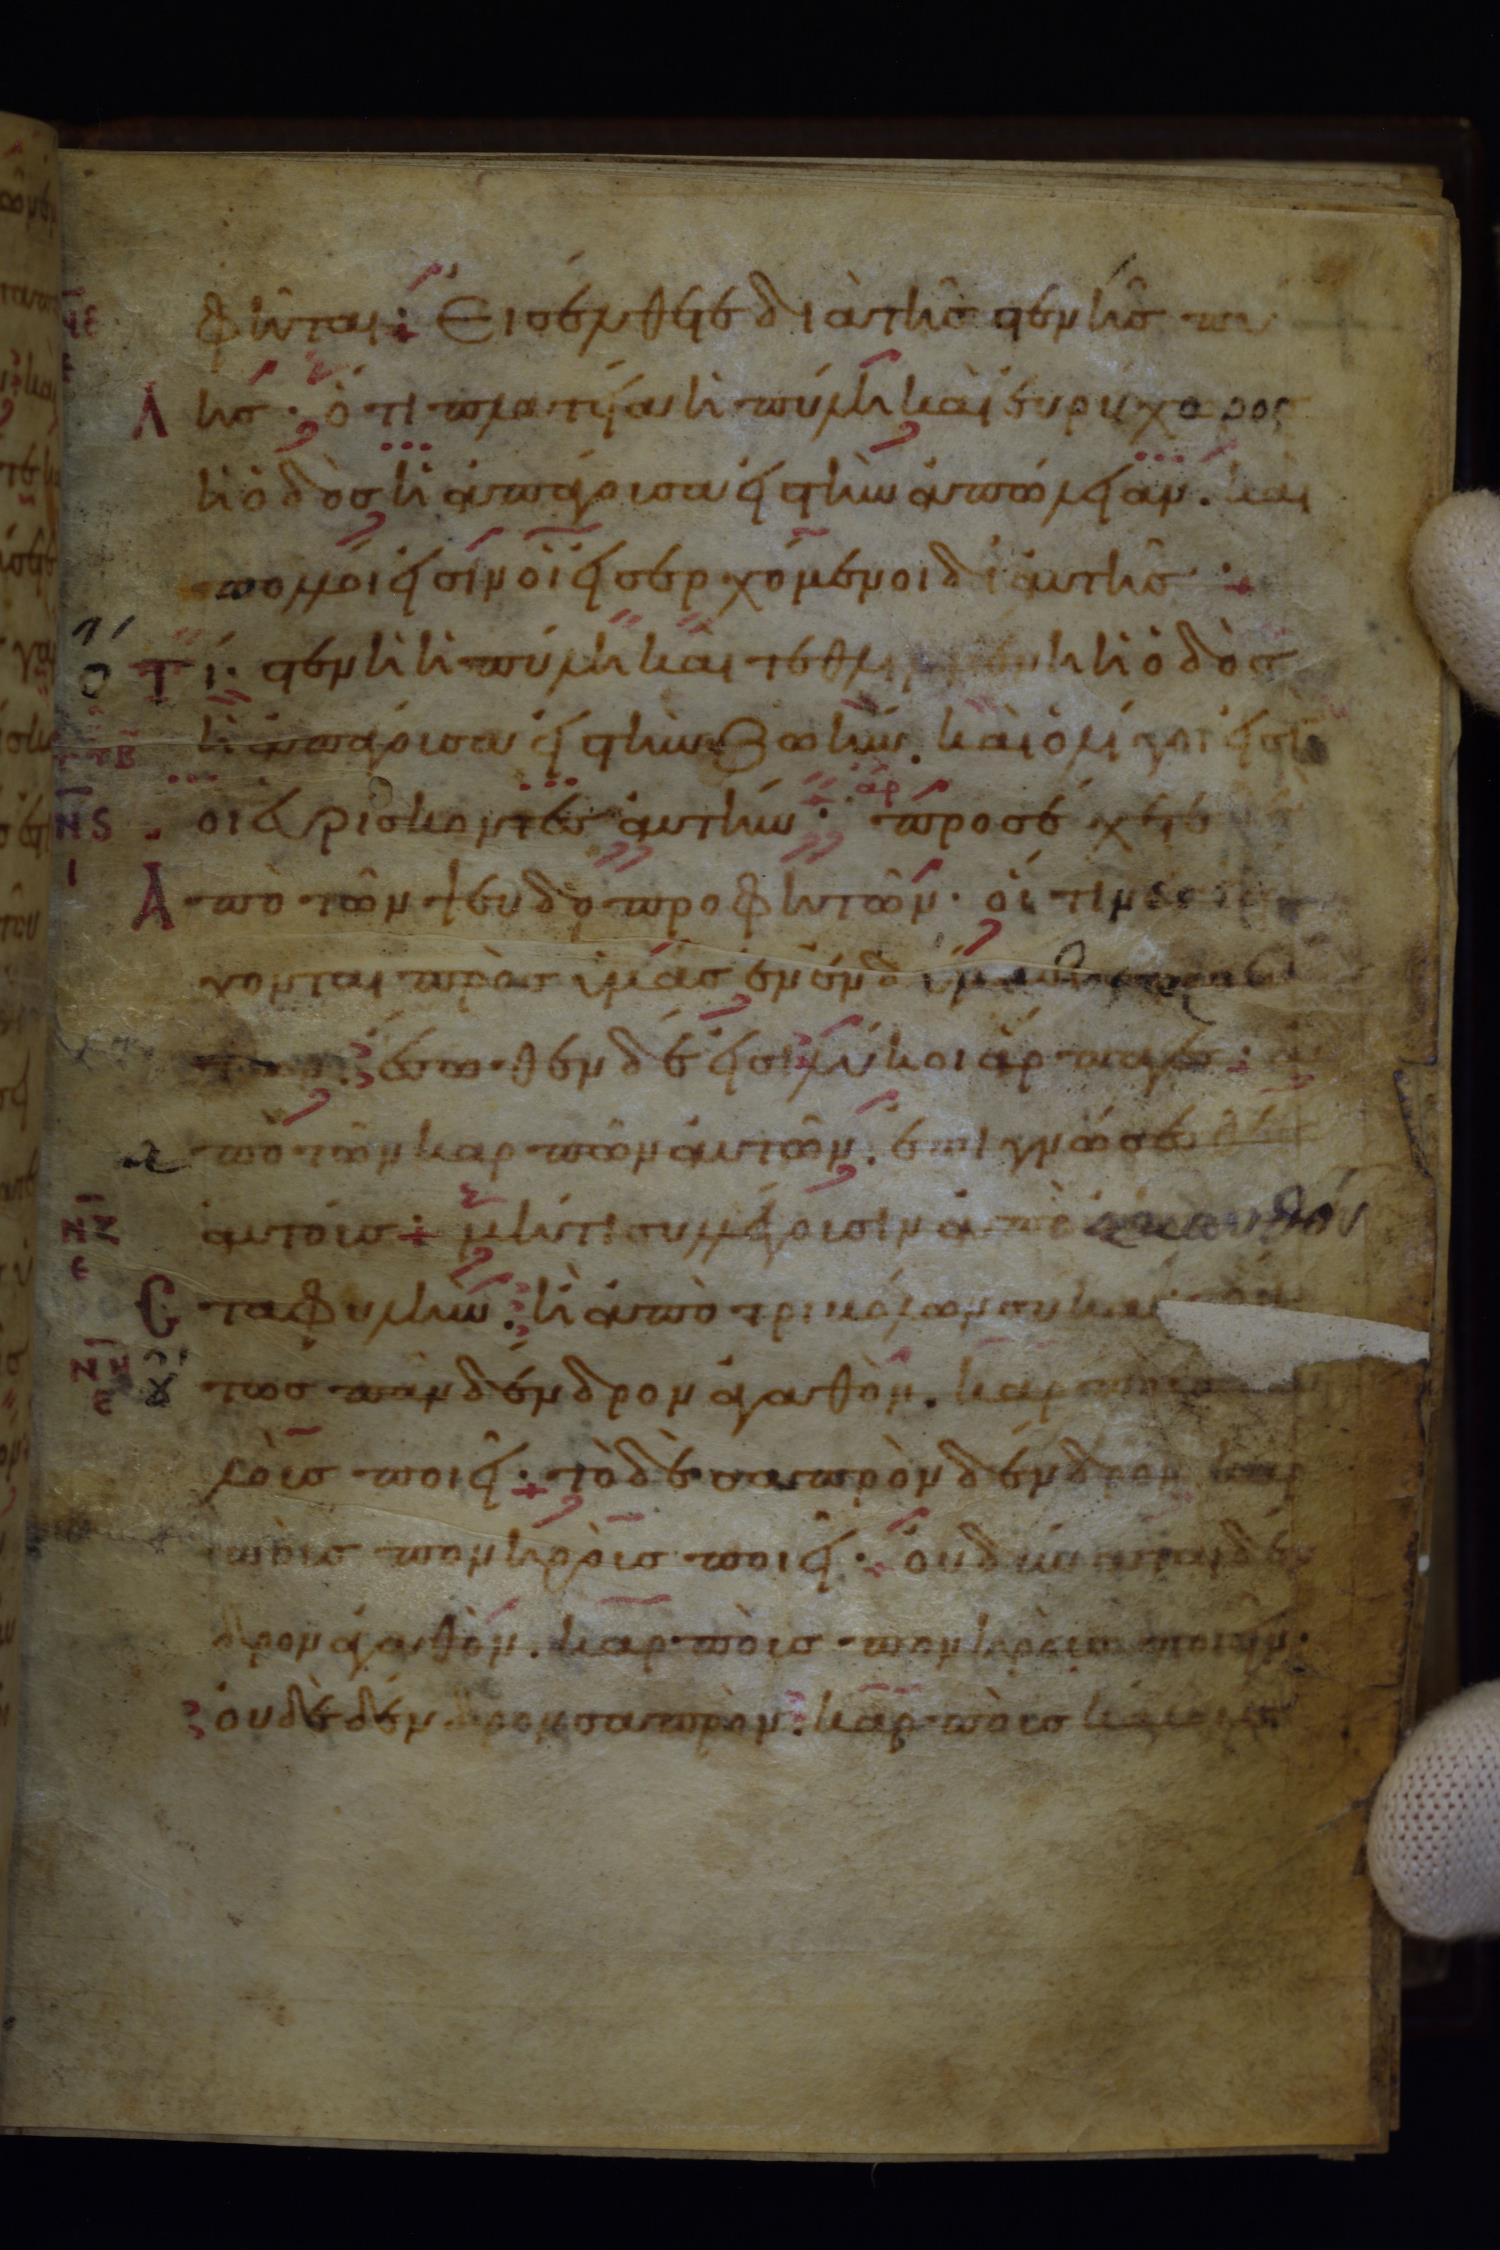 φῆται· Εἰσέλθετε διὰ τῆς στενῆς πυ
λης· ὅτι πλατεῖα ἡ πύλη καὶ εὐρύχορος
ἡ ὁδὸς ἡ ἀπάγουσα εἰς τὴν ἀπώλειαν. καὶ
πολλοί εἰσιν οἱ εἰσερχόμενοι δι αὐτῆς·
ὅτι· στενὴ ἡ πύλη καὶ τεθλιμμένη ἡ ὁδὸς
ἡ ἀπάγουσα εἰς τὴν ζωήν. καὶ ὀλίγοι εἰσὶν
οἱ εὑρίσκοντες αὐτήν· προσέχετε
ἀπὸ τῶν ψευδοπροφητῶν· οἵτινες
χονται πρὸς ὑμᾶς ἐν ἐνδύμασι
ἔσωθεν δέ εἰσι λύκοι ἅρπαγες· ἀ
πὸ τῶν καρπῶν αὐτῶν. ἐπιγνώσεσθε
αὐτούς· μήτι συλλέγουσιν ἀπὸ ἀκανθῶν
σταφυλήν. ἢ ἀπὸ τριβόλων σύκα
τως πᾶν δένδρον ἀγαθὸν. καρποὺς
λοὺς ποιεῖ· τὸ δὲ σαπρὸν δένδρον καρ
ποὺς πονηροὺς ποιεῖ· οὐ δύναται δέν
δρον ἀγαθὸν. καρποὺς πονηροὺς ποιεῖν·
οὐδὲ δένδρον σαπρὸν. καρποὺς